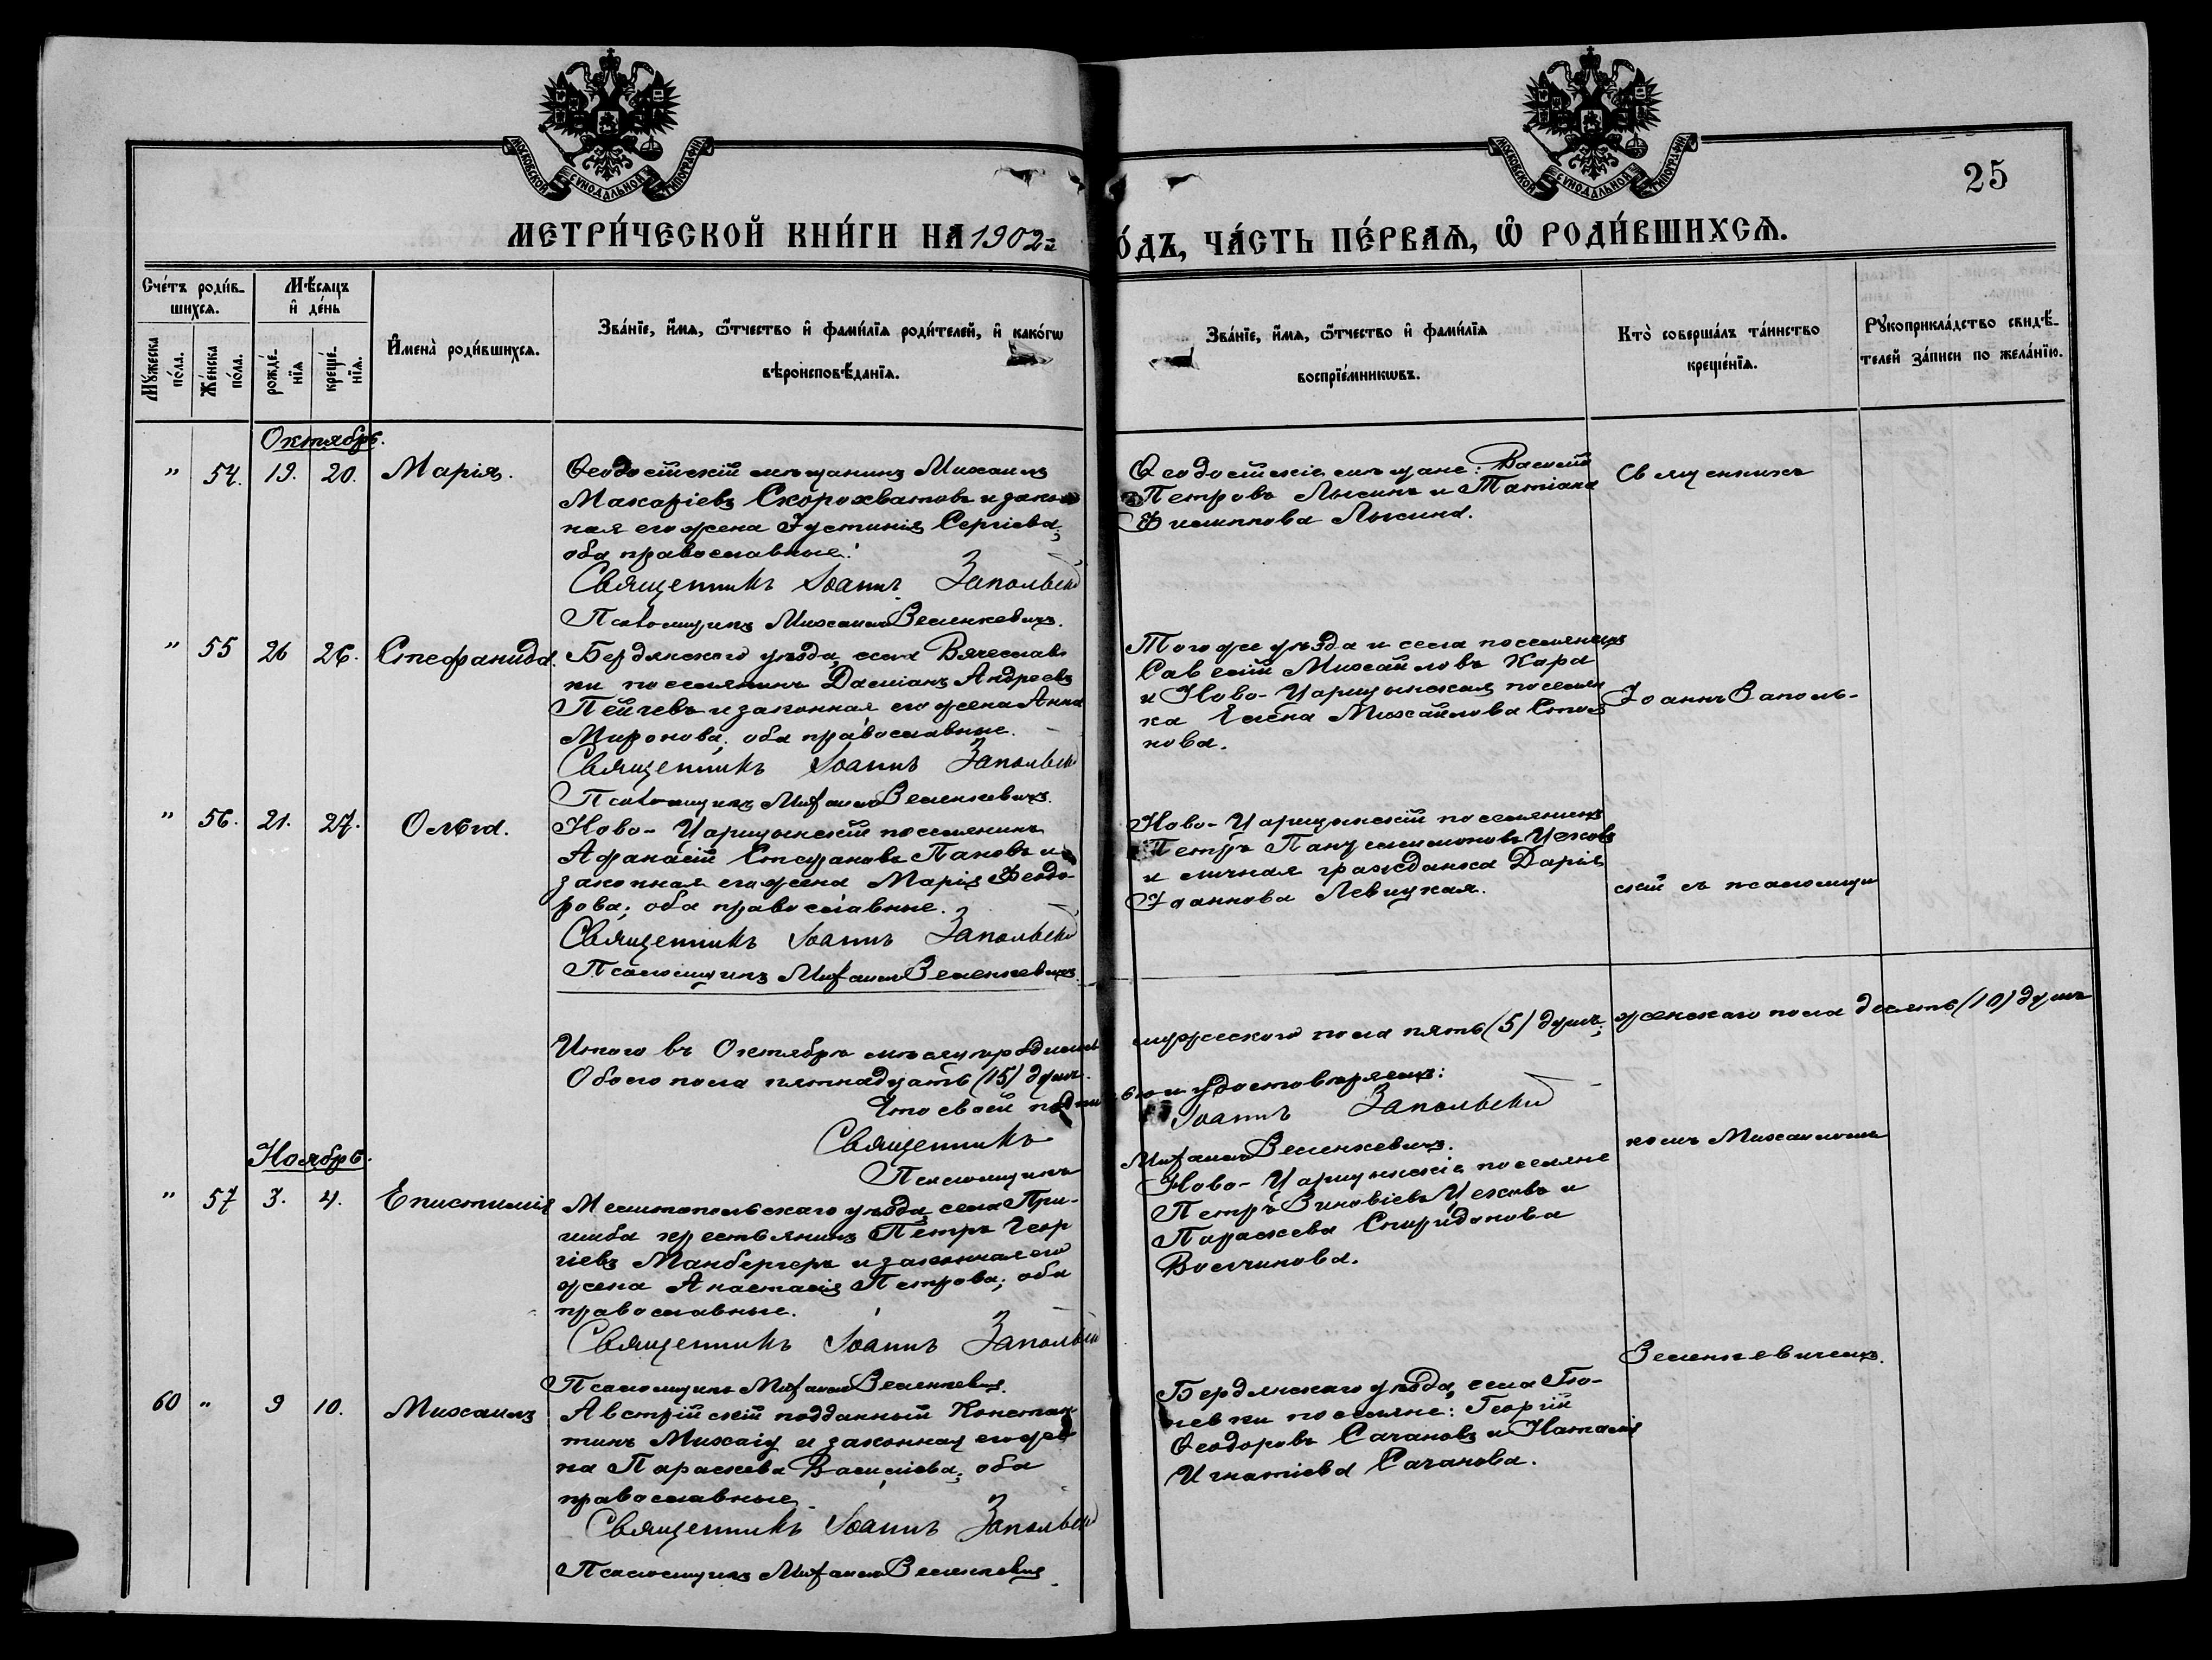 МОСКОВСКОЙ СѴНОДАЛЬНОЙ ТИПОГРАФІИ
МОСКОВСКОЙ СѴНОДАЛЬНОЙ ТИПОГРАФІИ
25
МЕТРИ́ЧЕСКОЙ КНИ́ГИ НА 1902 г
О́ДЪ, ЧА́СТЬ ПЕ́РВАѦ, Ѡ҆ РОДИ́ВШИХСѦ.
Сче́тъ роди́в-
шихсѧ.
Мѣ́сѧцъ
и҆ де́нь
Мꙋ́жеска
по́ла.
Же́нска
по́ла.
рожде́-
нїѧ
креще́-
нїѧ.
И҆мена̀ роди́вшихсѧ.
Зва́нїе, и҆́мѧ, ѻ҆́тчество и҆ фами́лїѧ роди́телей, и҆ како́гѡ
вѣроисповѣ́данїѧ.
Зва́нїе, и҆́мѧ, ѻ҆́тчество и҆ фами́лїѧ
воспрїе́мникѡвъ.
Кто̀ соверша́лъ та́инство
креще́нїѧ.
Рꙋкоприкла́дство свидѣ́-
телей за́писи по жела́нїю.
Октябрь.
" 54. 19. 20. Марія.
Ѳеодосійскій мѣщанинъ Михаилъ
Макаріевъ Скорохватовъ и закон
ная его жена Іустинія Сергіева;
оба православные.
Священникъ Іоаннъ Запольскій
Псаломщикъ Михаилъ Веленкевичъ.
Ѳеодосійскіе мѣщане: Василій
Петровъ Лысинъ и Татіана
Филиппова Лысина.
Священникъ
" 55 26 26. Стефанида.
Бердянскаго уѣзда, села Вячеслав
ки поселянинъ Даміанъ Андреевъ
Пейчевъ и законная его жена Анна
Миронова; оба православные.
Священникъ Іоаннъ Запольскій
Псаломщикъ Михаилъ Веленкевичъ.
Того же уѣзда и села поселянинъ
Савелій Михайловъ Кара
и Ново-Царицынская поселян
ка Елена Михайлова Стоя
нова.
Іоаннъ Заполь-
" 56. 21. 27. Ольга.
Ново-Царицынскій поселянинъ
Афанасій Стефановъ Пановъ и
законная его жена Марія Феодо-
рова; оба православные.
Священникъ Іоаннъ Запольскій
Псаломщикъ Михаилъ Веленкевичъ.
Ново-Царицынскій поселянинъ
Петръ
и личная гражданка Дарія
Іоаннова Левицкая.
скій съ псаломщи
Итого въ Октябрѣ мѣсяцѣ родилось
мужескаго пола пять (5) душъ; женскаго пола десять (10) душъ
Обоего пола пятнадцать (15) душъ.
Что своей подпи
сью и удостовѣряемъ:
Священникъ
Іоаннъ Запольскій
Псаломщикъ
Михаилъ Веленкевичъ.
комъ Михаиломъ
Ноябрь.
" 57 3. 4. Епистимія
Мелитопольскаго уѣзда села При-
шиба крестьянинъ Петръ Геор
гіевъ Манбергеръ и законная его
жена Анастасія Петрова; оба
православные.
Священникъ Іоаннъ Запольскій
Псаломщикъ Михаилъ Веленкевич.
Ново-Царицынскіе поселяне
Петръ Зиновіевъ и
Параскева Спиридонова
Волчинова.
Веленкевичемъ.
60 " 9 10. Михаилъ
Австрійскій подданный Констан
тинъ Михаіц и законная его же
на Параскева Василіева; оба
православные.
Священникъ Іоаннъ Запольскій
Псаломщикъ Михаилъ Веленкевич
Бердянскаго уѣзда, села
поселяне: Георгій
Ѳеодоровъ Сачановъ и Наталія
Игнатіева Сачанова.